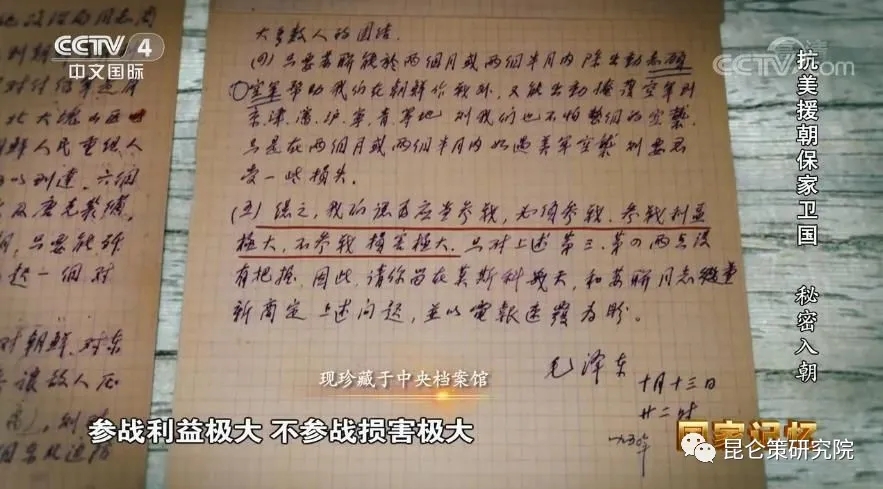 CCTV 4
中文国际
CCTV.com
抗美援朝保家卫国 秘密入朝
北大块山区
鲜人民重组人
对朝鲜,对东
大多数人的团结.
(四)只要苏联能於两個月或两個半月内除出動志願
空军幫助我们在朝鲜作战外,又能出動掩護空军到
京、津、沪、寧、青等地,则我们也不怕整個的空襲,
只是在两個月或两個半月内如遇美军空襲则要忍
受一些損失。
(五)總之,我们认为应当参戰,必须参戰,参戰利益
極大,不参戰損害極大.只对上述第三、第四两点没
有把握,因此,请你留在莫斯科数天,和苏联同志们重
新商定上述问题,並以電報速覆为盼。
毛泽东
十月十三日
廿二时
一九五〇年
现珍藏于中央档案馆
参战利益极大 不参战损害极大
国家记忆
昆仑策研究院